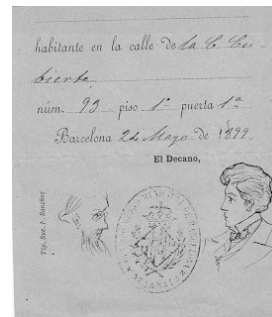 habitante en la calle de la C. Cu-
bierta
núm. 93 piso 1º puerta 1ª
Barcelona 24 Mayo de 1899
El Decano,
Tip. Suc. J. Sanchez